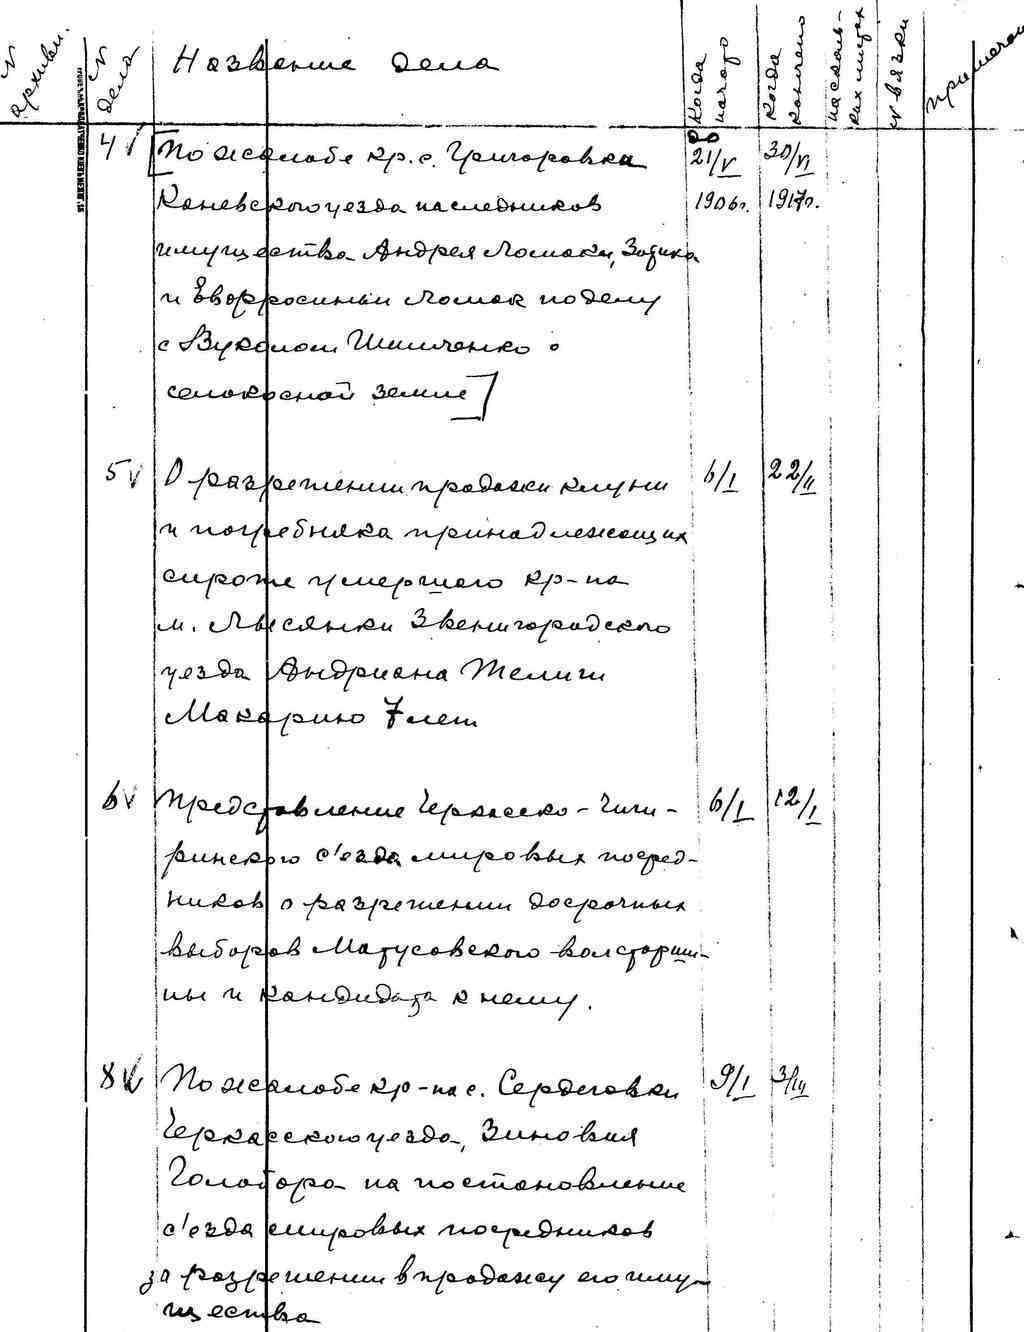 N архивн.
N дела
Название дела
Когда начато
Когда кончено
на сколь-ких листах
N вязки
примечан
4 По жалобе кр. с. Григоровка 21/V 30/VI
Каневского уезда наследников 1906г. 1917г.
имущества Андрея Ломаки,
и Евфросиньи Ломак по делу
с Вуколом Шишченко о
сенокосной земле]
5 О разрешении продажи клуни 6/I 22/II
и погребника принадлежащих
сироте умершего кр-на
м. Лысянки Звенигородского
уезда Андриана Телиги
Макарию 7 лет
6 Представление Черкасско-Чиги- 6/I 12/I
ринского с'езда мировых посред-
ников о разрешении досрочных
выборов Матусовского волстарши-
ны и кандидата к нему.
8 По жалобе кр-на с. Сердеговки 9/I 3/III
Черкасского уезда, Зиновия
Голобора на постановление
с'езда мировых посредников
за разрешении в продажу его иму-
щества